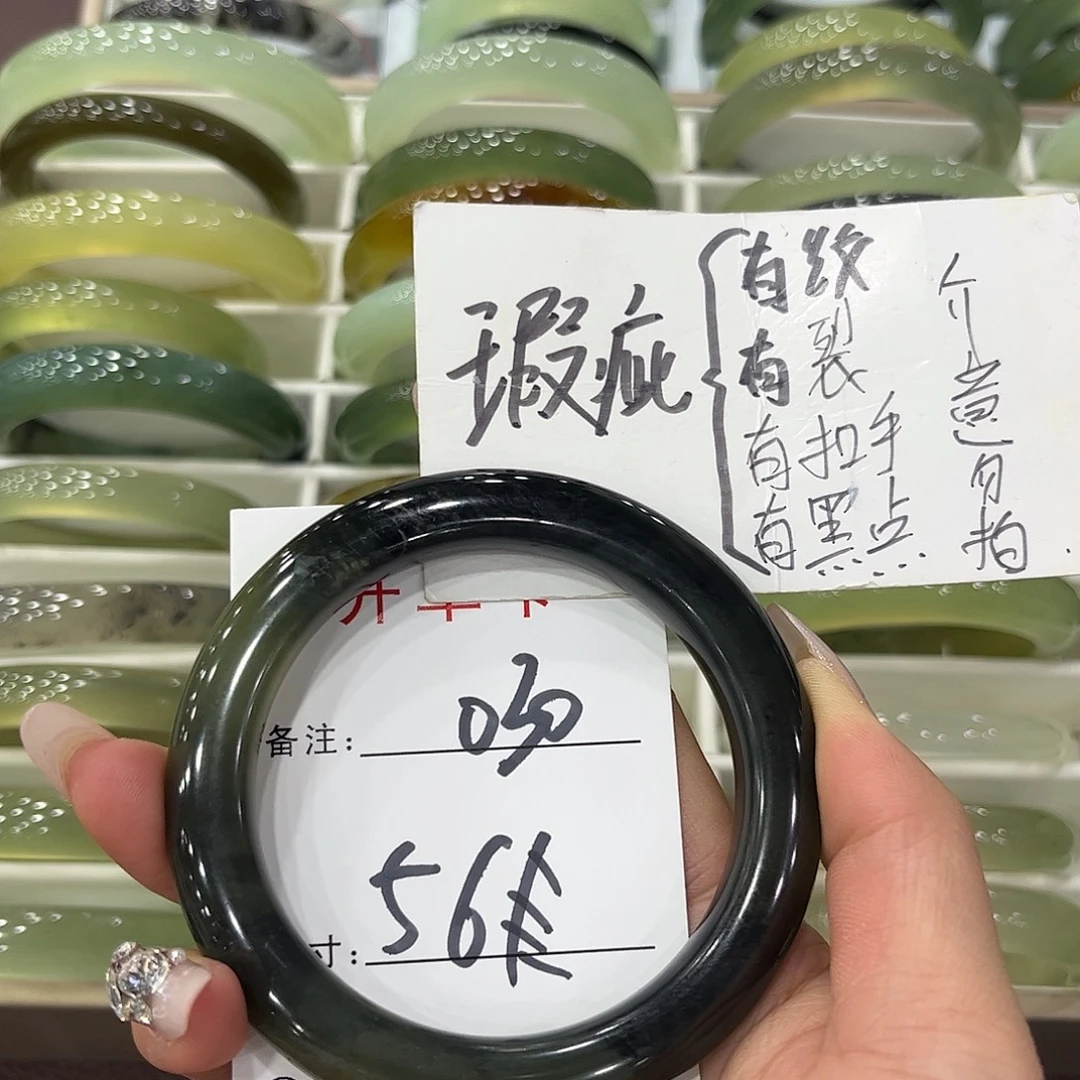 瑕疵
有纹
有裂
有扣手
有黑点.
介意勿拍.
备注:
吻
寸:
56